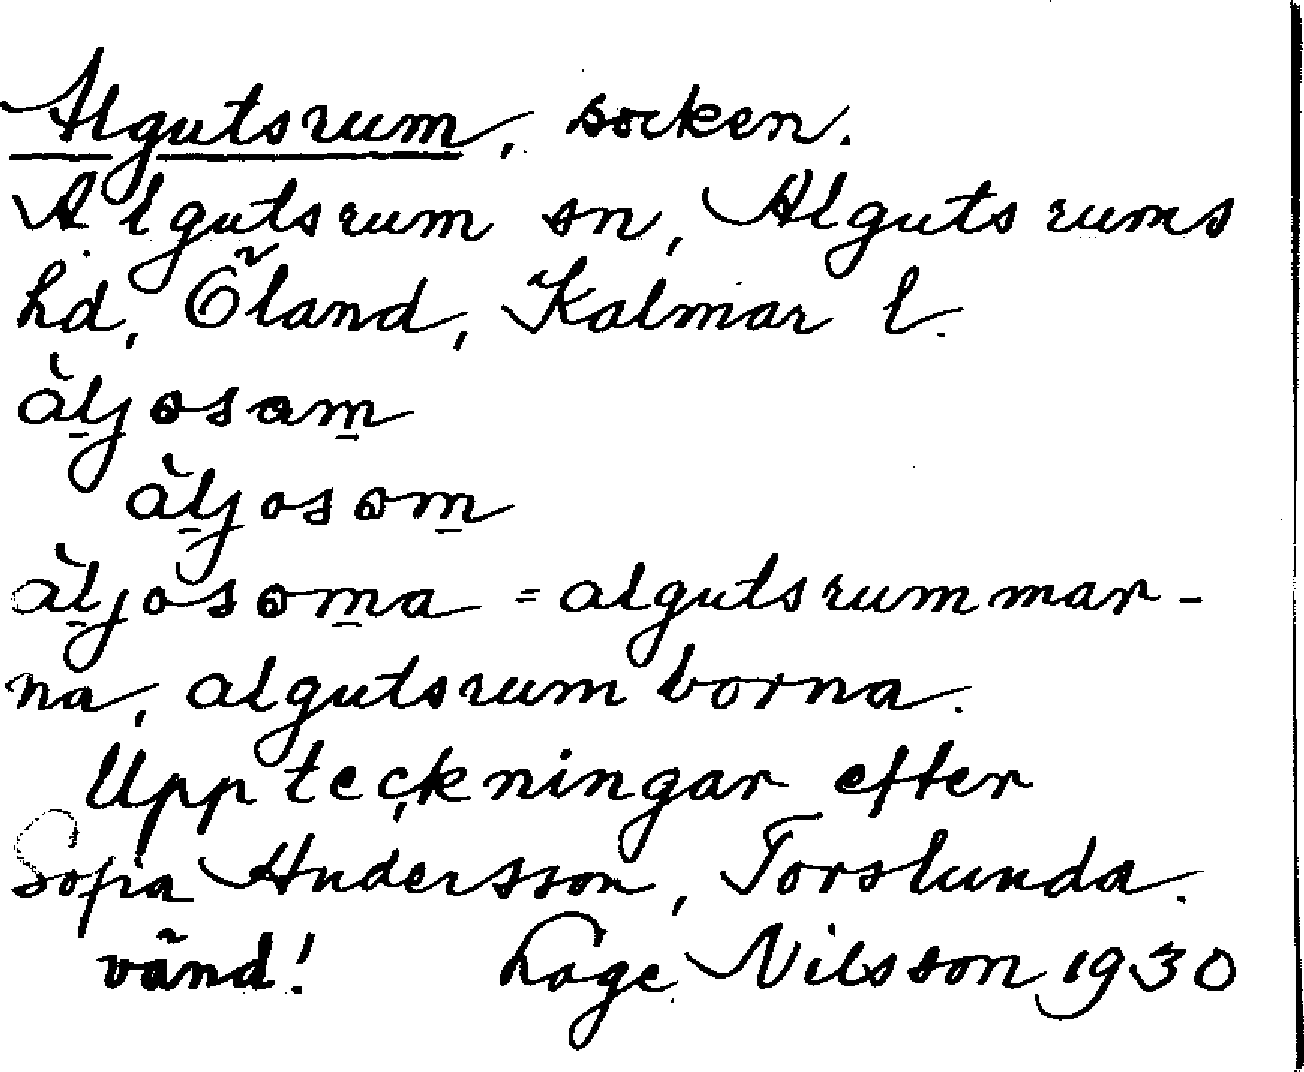 Algutsrum, socken.
Algutsrum sn, Algutsrums
hd, Öland, Kalmar l.
äljosam
äljosom
äljosoma = algutsrummar-
na, algutsrumborna.
Uppteckningar efter
Sofia Andersson, Torslunda.
vänd! Lage Nilsson 1930